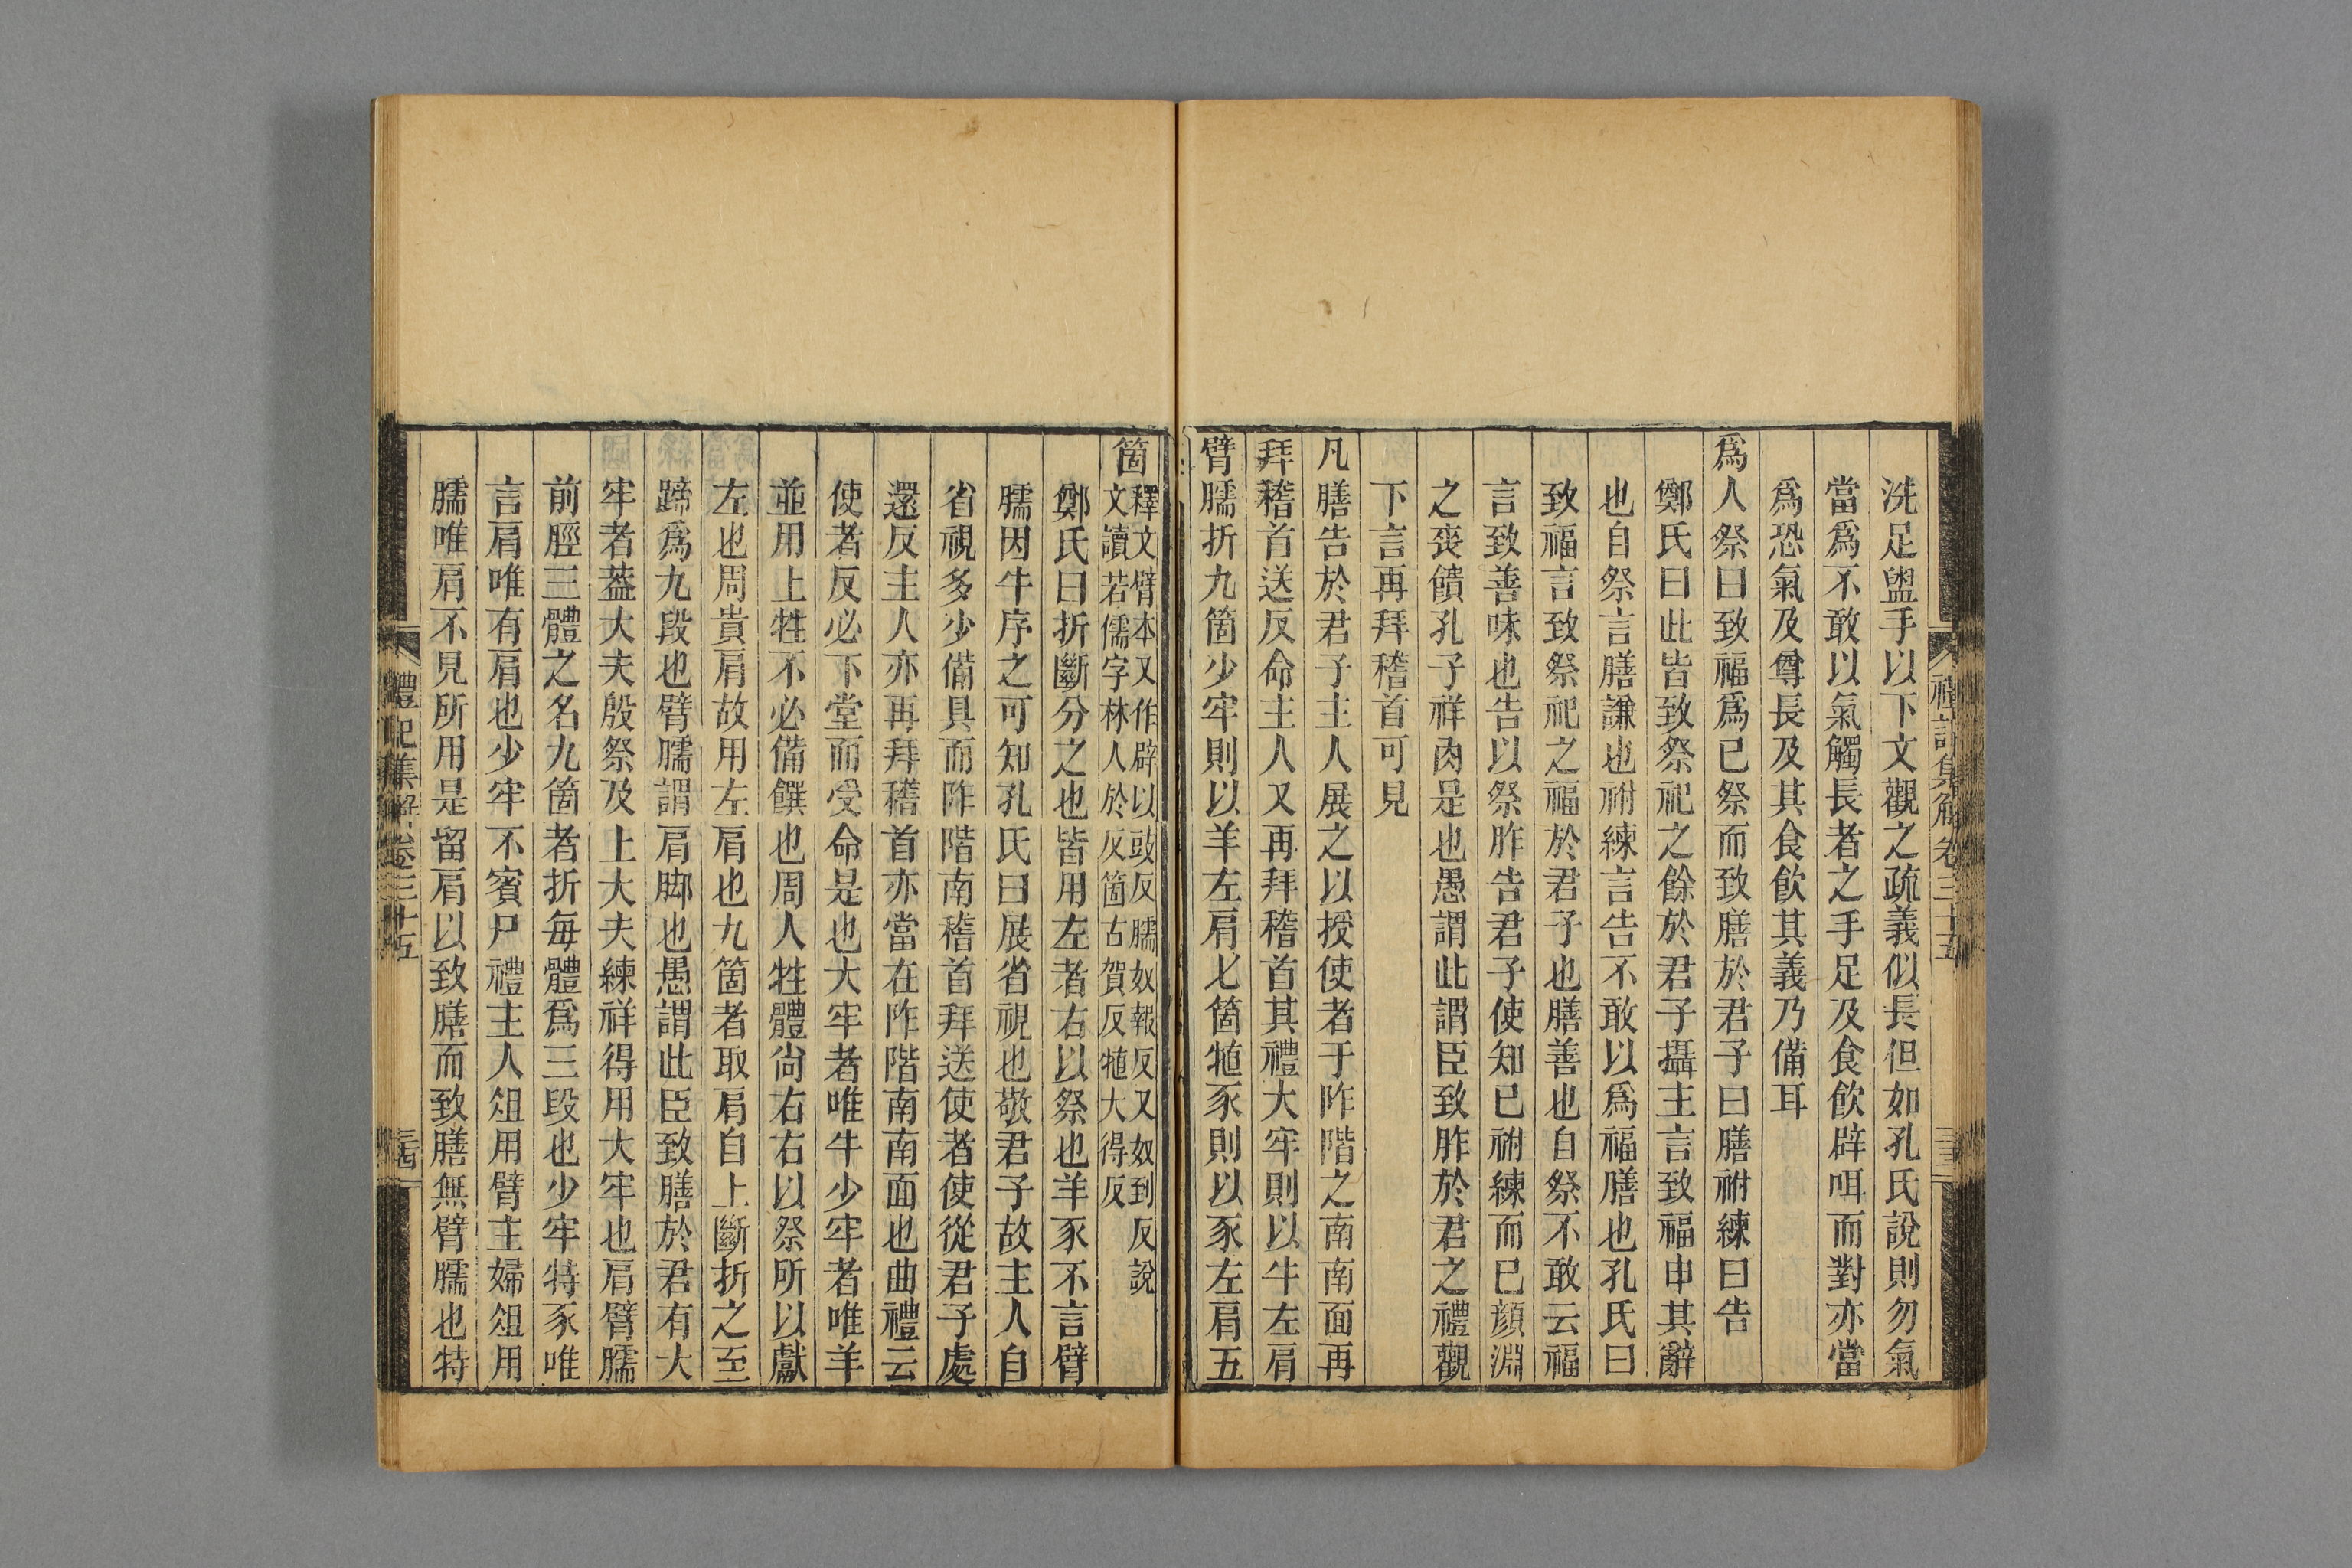 禮記集解卷三十五
三三
洗足盥手以下文觀之疏義似長但如孔氏說則勿氣
當爲不敢以氣觸長者之手足及食飲辟咡而對亦當
爲恐氣及尊長及其食飲其義乃備耳
爲人祭曰致福爲已祭而致膳於君子曰膳祔練曰告
鄭氏曰此皆致祭祀之餘於君子攝主言致福申其辭
也自祭言膳謙也祔練言告不敢以爲福膳也孔氏曰
致福言致祭祀之福於君子也膳善也自祭不敢云福
言致善味也告以祭胙告君子使知已祔練而已顏淵
之喪饋孔子祥肉是也愚謂此謂臣致胙於君之禮觀
下言再拜稽首可見
凡膳告於君子主人展之以授使者于阼階之南南面再
拜稽首送反命主人又再拜稽首其禮大牢則以牛左肩
臂臑折九箇少牢則以羊左肩七箇犆豕則以豕左肩五
箇
釋文臂本又作辟以豉反臑奴報反又奴到反說
文讀若儒字林人於反箇古賀反犆大得反
鄭氏曰折斷分之也皆用左者右以祭也羊豕不言臂
臑因牛序之可知孔氏曰展省視也敬君子故主人自
省視多少備具而阼階南稽首拜送使者使從君子處
還反主人亦再拜稽首亦當在阼階南南面也曲禮云
使者反必下堂而受命是也大牢者唯牛少牢者唯羊
並用上牲不必備饌也周人牲體尚右右以祭所以獻
左也周貴肩故用左肩也九箇者取肩自上斷折之至
蹄爲九段也臂臑謂肩脚也愚謂此臣致膳於君有大
牢者葢大夫殷祭及上大夫練祥得用大牢也肩臂臑
前脛三體之名九箇者折每體爲三段也少牢特豕唯
言肩唯有肩也少牢不賓尸禮主人俎用臂主婦俎用
臑唯肩不見所用是留肩以致膳而致膳無臂臑也特
禮記集解卷三十五
三四